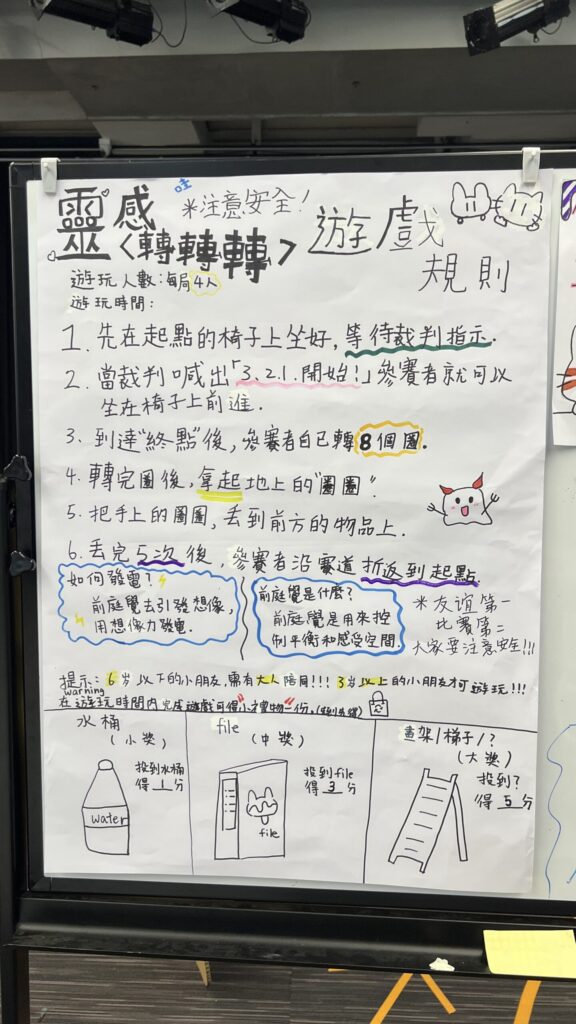 靈感 ※注意安全! 哇
<轉轉轉> 遊戲
規則
遊玩人數:每局4人
遊玩時間:
1. 先在起點的椅子上坐好,等待裁判指示.
2. 當裁判喊出「3、2、1.開始!」參賽者就可以
坐在椅子上前進.
3. 到達"終點"後,參賽者自己轉8個圈.
4. 轉完圈後,拿起地上的"圈圈".
5. 把手上的圈圈,丟到前方的物品上.
6. 丟完5次後,參賽者沿賽道折返到起點
如何發電?
前庭覺去引發想像,
用想像力發電.
前庭覺是什麼?
前庭覺是用來控
制平衡和感受空間.
※友誼第一
比賽第二
大家要注意安全!!!
提示: 6岁以下的小朋友,需有大人陪同!!! 3岁以上的小朋友才可遊玩!!!
warning
在遊玩時間內完成遊戲可得"小"禮物一份.
水桶
(小獎)
投到水桶
得 1 分
water
file
(中獎)
投到file
得 3 分
file
畫架/梯子/?
(大獎)
投到?
得 5 分